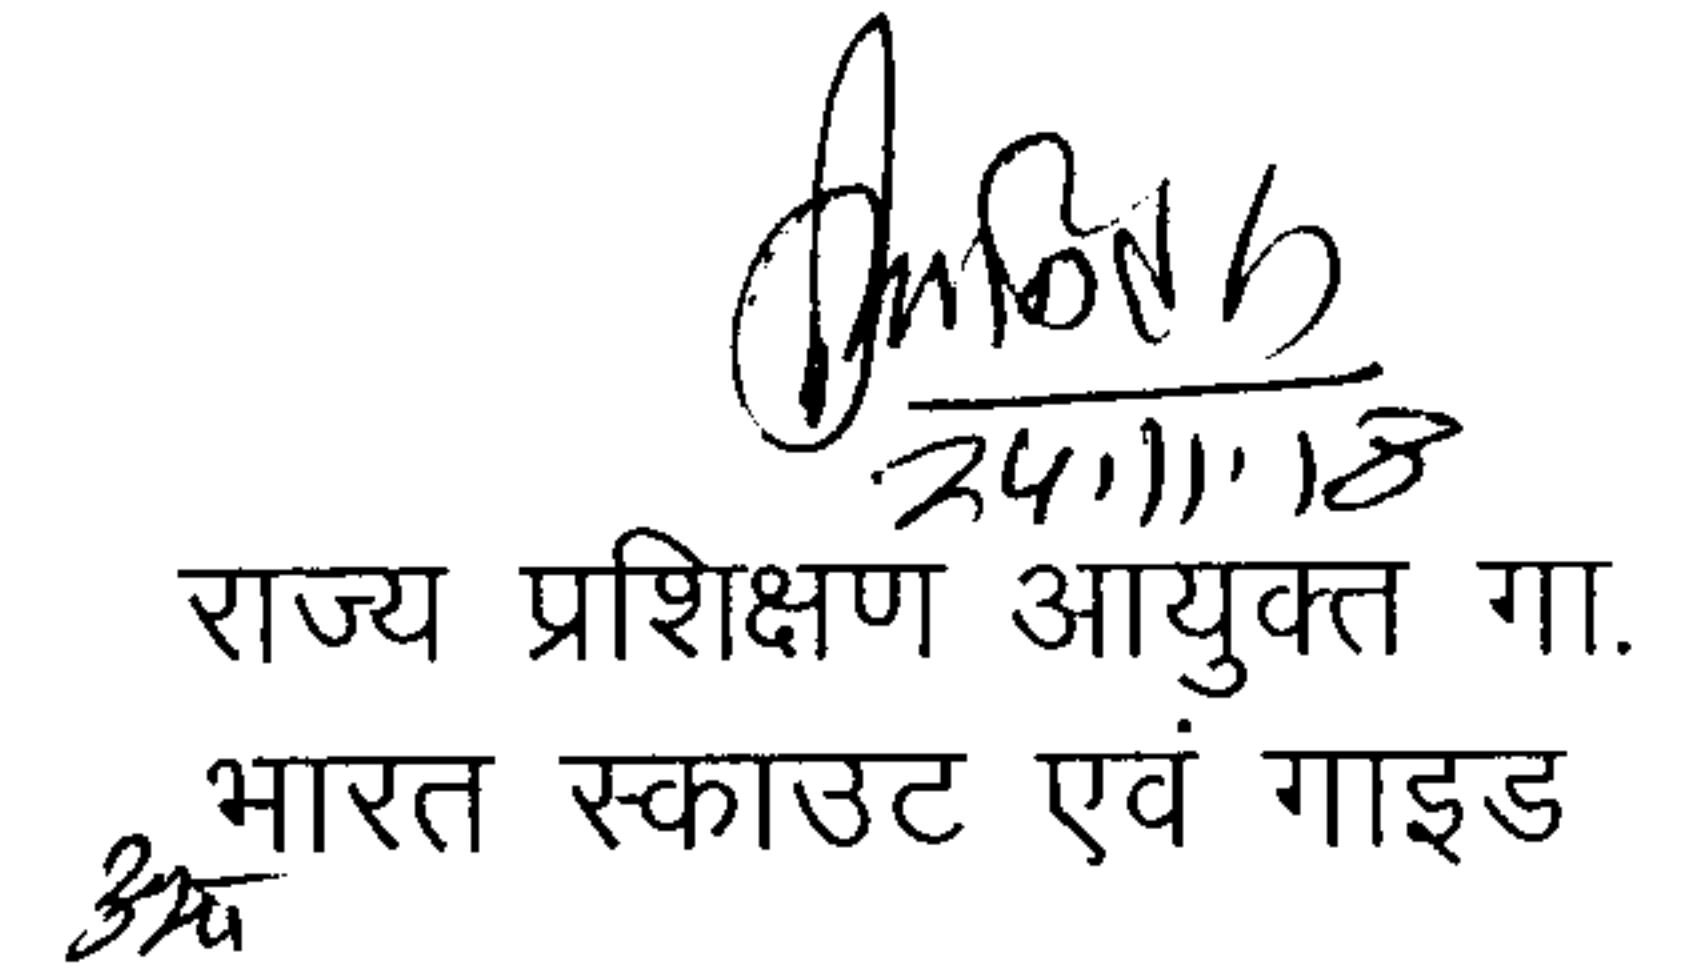 24.11.18
राज्य प्रशिक्षण आयुक्त गा.
भारत स्काउट एवं गाइड